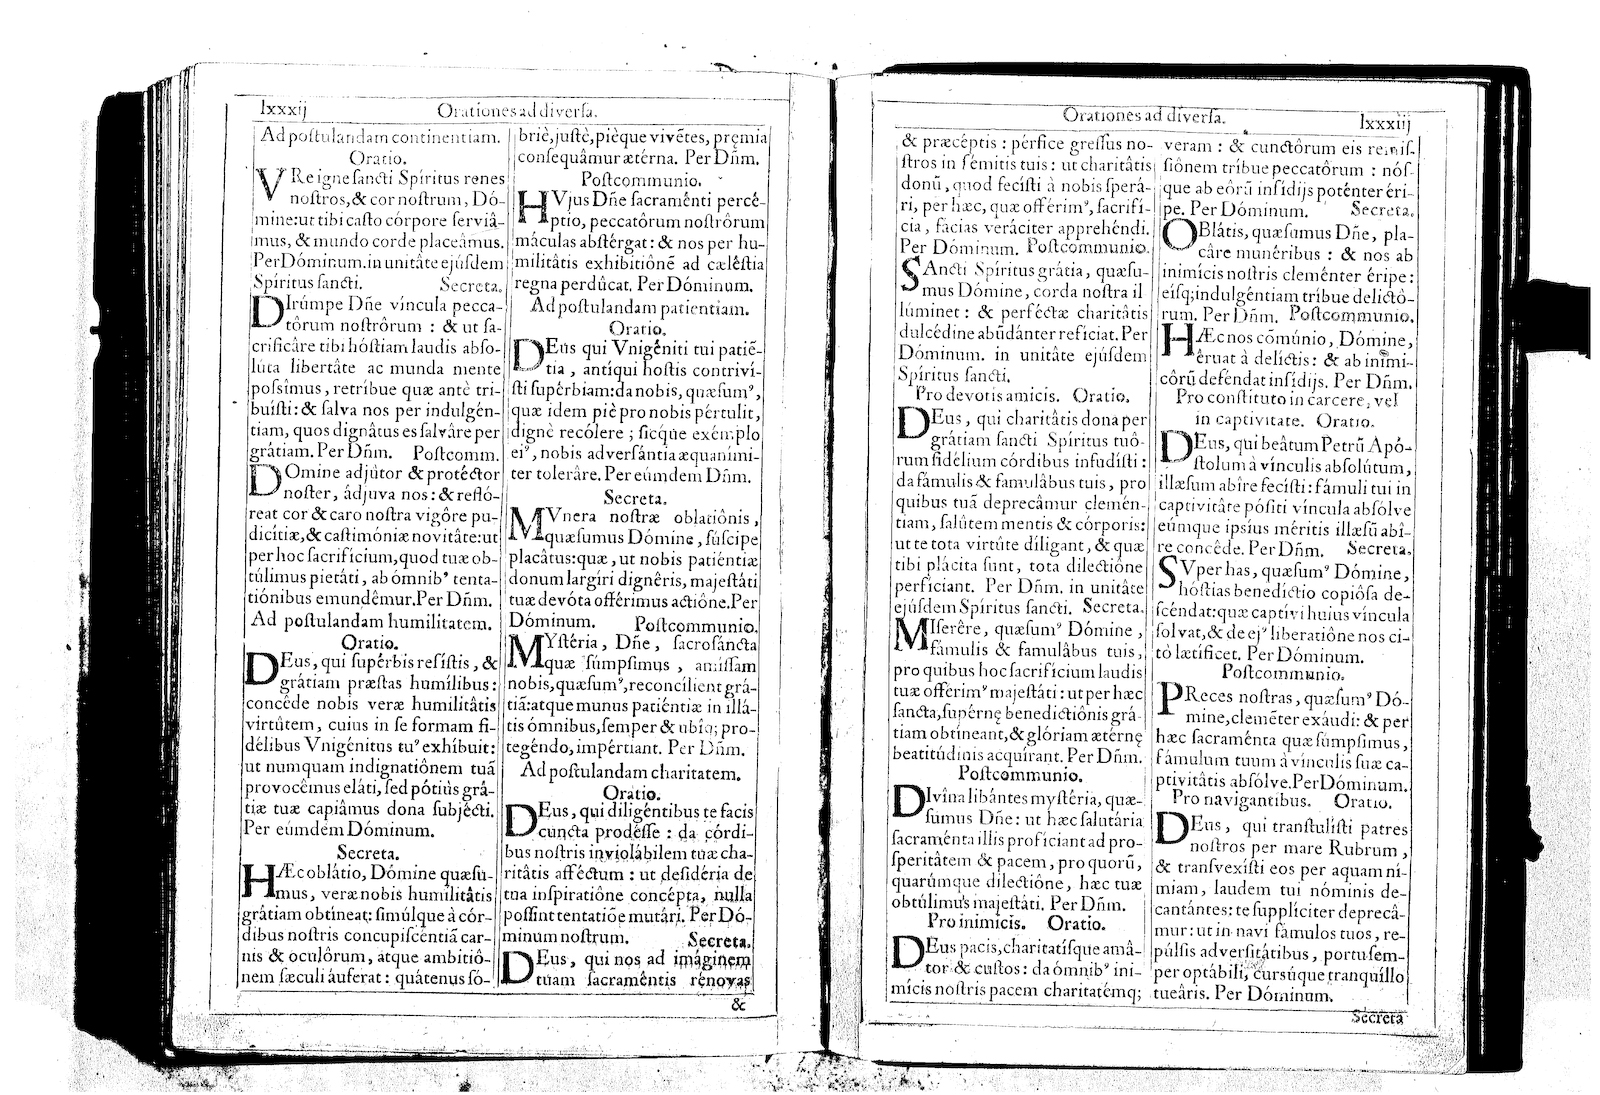 lxxxij Orationes ad diverſa.
Ad poſtulandam continentiam.
Oratio.
VRe igne ſancti Spíritus renes
noſtros, & cor noſtrum, Dó-
mine: ut tibi caſto córpore ſerviâ-
mus, & mundo corde placeâmus.
Per Dóminum. in unitâte ejúſdem
Spíritus ſancti. Secreta.
DIrúmpe Dñe víncula pecca-
tôrum noſtrôrum : & ut ſa-
crificâre tibi hóſtiam laudis abſo-
lúta libertâte ac munda mente
poſsímus, retríbue quæ antè tri-
buíſti: & ſalva nos per indulgén-
tiam, quos dignâtus es ſalvâre per
grátiam. Per Dñm. Poſtcomm.
DOmine adjútor & protéctor
noſter, ádjuva nos: & refló-
reat cor & caro noſtra vigôre pu-
dicítiæ, & caſtimóniæ novitâte: ut
per hoc ſacrifícium, quod tuæ ob-
túlimus pietáti, ab ómnibꝰ tenta-
tiónibus emundêmur. Per Dñm.
Ad poſtulandam humilitatem.
Oratio.
DEus, qui ſupérbis reſíſtis, &
grátiam præſtas humílibus:
concêde nobis veræ humilitâtis
virtûtem, cuius in ſe formam fi-
délibus Vnigénitus tuꝰ exhíbuit:
ut numquam indignatiônem tuã
provocêmus eláti, ſed pótiùs grá-
tiæ tuæ capiâmus dona ſubjécti.
Per eúmdem Dóminum.
Secreta.
HÆc oblátio, Dómine quæſu-
mus, veræ nobis humilitâtis
grâtiam obtíneat: ſimúlque à cór-
dibus noſtris concupiſcéntiã car-
nis & oculôrum, atque ambitiô-
nem ſæculi áuferat : quâtenus ſó-
briè, juſtè, pièque vivẽtes, pręmia
conſequâmur ætérna. Per Dñm.
Poſtcommunio.
HVjus Dñe ſacraménti percé-
ptio, peccatôrum noſtrôrum
máculas abſtérgat: & nos per hu-
militâtis exhibitiônẽ ad cæléſtia
regna perdûcat. Per Dóminum.
Ad poſtulandam patientiam.
Oratio.
DEus qui Vnigéniti tui patiẽ-
tia , antíqui hoſtis contriví-
ſti ſupérbiam: da nobis, quæſumꝰ,
quæ idem piè pro nobis pértulit,
dignè recólere ; ſicque exémplo
eiꝰ, nobis adverſántia æquanimi-
ter tolerâre. Per eúmdem Dñm.
Secreta.
MVnera noſtræ oblatiônis ,
quæſumus Dómine, ſúſcipe
placâtus: quæ, ut nobis patiéntiæ
donum largíri dignêris, majeſtáti
tuæ devóta offérimus actiône. Per
Dóminum. Poſtcommunio.
MYſtéria, Dñe, ſacroſáncta
quæ ſúmpſimus , amíſſam
nobis, quæſumꝰ, reconcílient grá-
tiã: atque munus patiéntiæ in illá-
tis ómnibus, ſemper & ubíq; pro-
tegéndo, impértiant. Per Dñm.
Ad poſtulandam charitatem.
Oratio.
DEus, qui diligéntibus te facis
cuncta prodéſſe : da córdi-
bus noſtris inviolábilem tuæ cha-
ritâtis afféctum : ut deſidéria de
tua inſpiratiône concépta, nulla
poſſint tentatiõe mutári. Per Dó-
minum noſtrum. Secreta.
DEus, qui nos ad imáginem
tuam ſacraméntis rénovas
&
Orationes ad diverſa. lxxxiij
& præcéptis : pérfice greſſus no-
ſtros in ſémitis tuis : ut charitâtis
donũ, quod feciſti à nobis ſperá-
ri, per hæc, quæ offérimꝰ, ſacrifí-
cia, fácias veráciter apprehéndi.
Per Dóminum. Poſtcommunio.
SAncti Spíritus grátia, quæſu-
mus Dómine, corda noſtra il
lúminet : & perféctæ charitâtis
dulcédine abũdánter refíciat. Per
Dóminum. in unitâte ejúſdem
Spíritus ſancti.
Pro devotis amicis. Oratio.
DEus, qui charitâtis dona per
grátiam ſancti Spíritus tuô-
rum fidélium córdibus infudíſti :
da fámulis & famulâbus tuis, pro
quibus tuã deprecâmur clemén-
tiam, ſalûtem mentis & córporis:
ut te tota virtûte díligant, & quæ
tibi plácita ſunt, tota dilectiône
perfíciant. Per Dñm. in unitâte
ejúſdem Spíritus ſancti. Secreta.
MIſerêre, quæſumꝰ Dómine ,
fámulis & famulâbus tuis,
pro quibus hoc ſacrifícium laudis
tuæ offérimꝰ majeſtáti : ut per hæc
ſancta, ſupérnę benedictiônis grá-
tiam obtíneant, & glóriam ætérnę
beatitúdinis acquírant. Per Dñm.
Poſtcommunio.
DIvîna libántes myſtéria, quæ-
ſumus Dñe: ut hæc ſalutária
ſacraménta illis profíciant ad pro-
ſperitâtem & pacem, pro quorũ,
quarúmque dilectiône, hæc tuæ
obtúlimus majeſtáti. Per Dñm.
Pro inimicis. Oratio.
DEus pacis, charitatíſque amâ-
tor & cuſtos: da ómnibꝰ ini-
mícis noſtris pacem charitatémq;
veram : & cunctôrum eis remiſ-
ſiônem tríbue peccatôrum : nóſ-
que ab eôrũ inſídijs poténter éri-
pe. Per Dóminum. Secreta.
OBlátis, quæſumus Dñe, pla-
câre munéribus : & nos ab
inimícis noſtris cleménter éripe:
eíſq; indulgéntiam tríbue delictô-
rum. Per Dñm. Poſtcommunio.
HÆc nos cõmúnio, Dómine,
éruat à delíctis: & ab inimi-
côrũ deféndat inſídijs. Per Dñm.
Pro conſtituto in carcere, vel
in captivitate. Oratio.
DEus, qui beâtum Petrũ Apó-
ſtolum à vínculis abſolútum,
illæſum abîre feciſti: fámuli tui in
captivitâte póſiti víncula abſólve
eúmque ipſíus méritis illæſũ abî-
re concêde. Per Dñm. Secreta.
SVper has, quæſumꝰ Dómine,
hóſtias benedíctio copiôſa de-
ſcéndat: quæ captívi huius víncula
ſolvat, & de ejꝰ liberatiône nos ci-
tò lætíficet. Per Dóminum.
Poſtcommunio.
PReces noſtras, quæſumꝰ Dó-
mine, clemẽter exáudi: & per
hæc ſacraménta quæ ſúmpſimus,
fámulum tuum à vínculis ſuæ ca-
ptivitâtis abſólve. Per Dóminum.
Pro navigantibus. Oratio.
DEus , qui tranſtulíſti patres
noſtros per mare Rubrum ,
& tranſvexíſti eos per aquam ní-
miam, laudem tui nóminis de-
cantántes: te ſupplíciter deprecâ-
mur: ut in navi fámulos tuos, re-
púlſis adverſitátibus, portu ſem-
per optábili, curſúque tranquíllo
tueâris. Per Dóminum.
Secreta